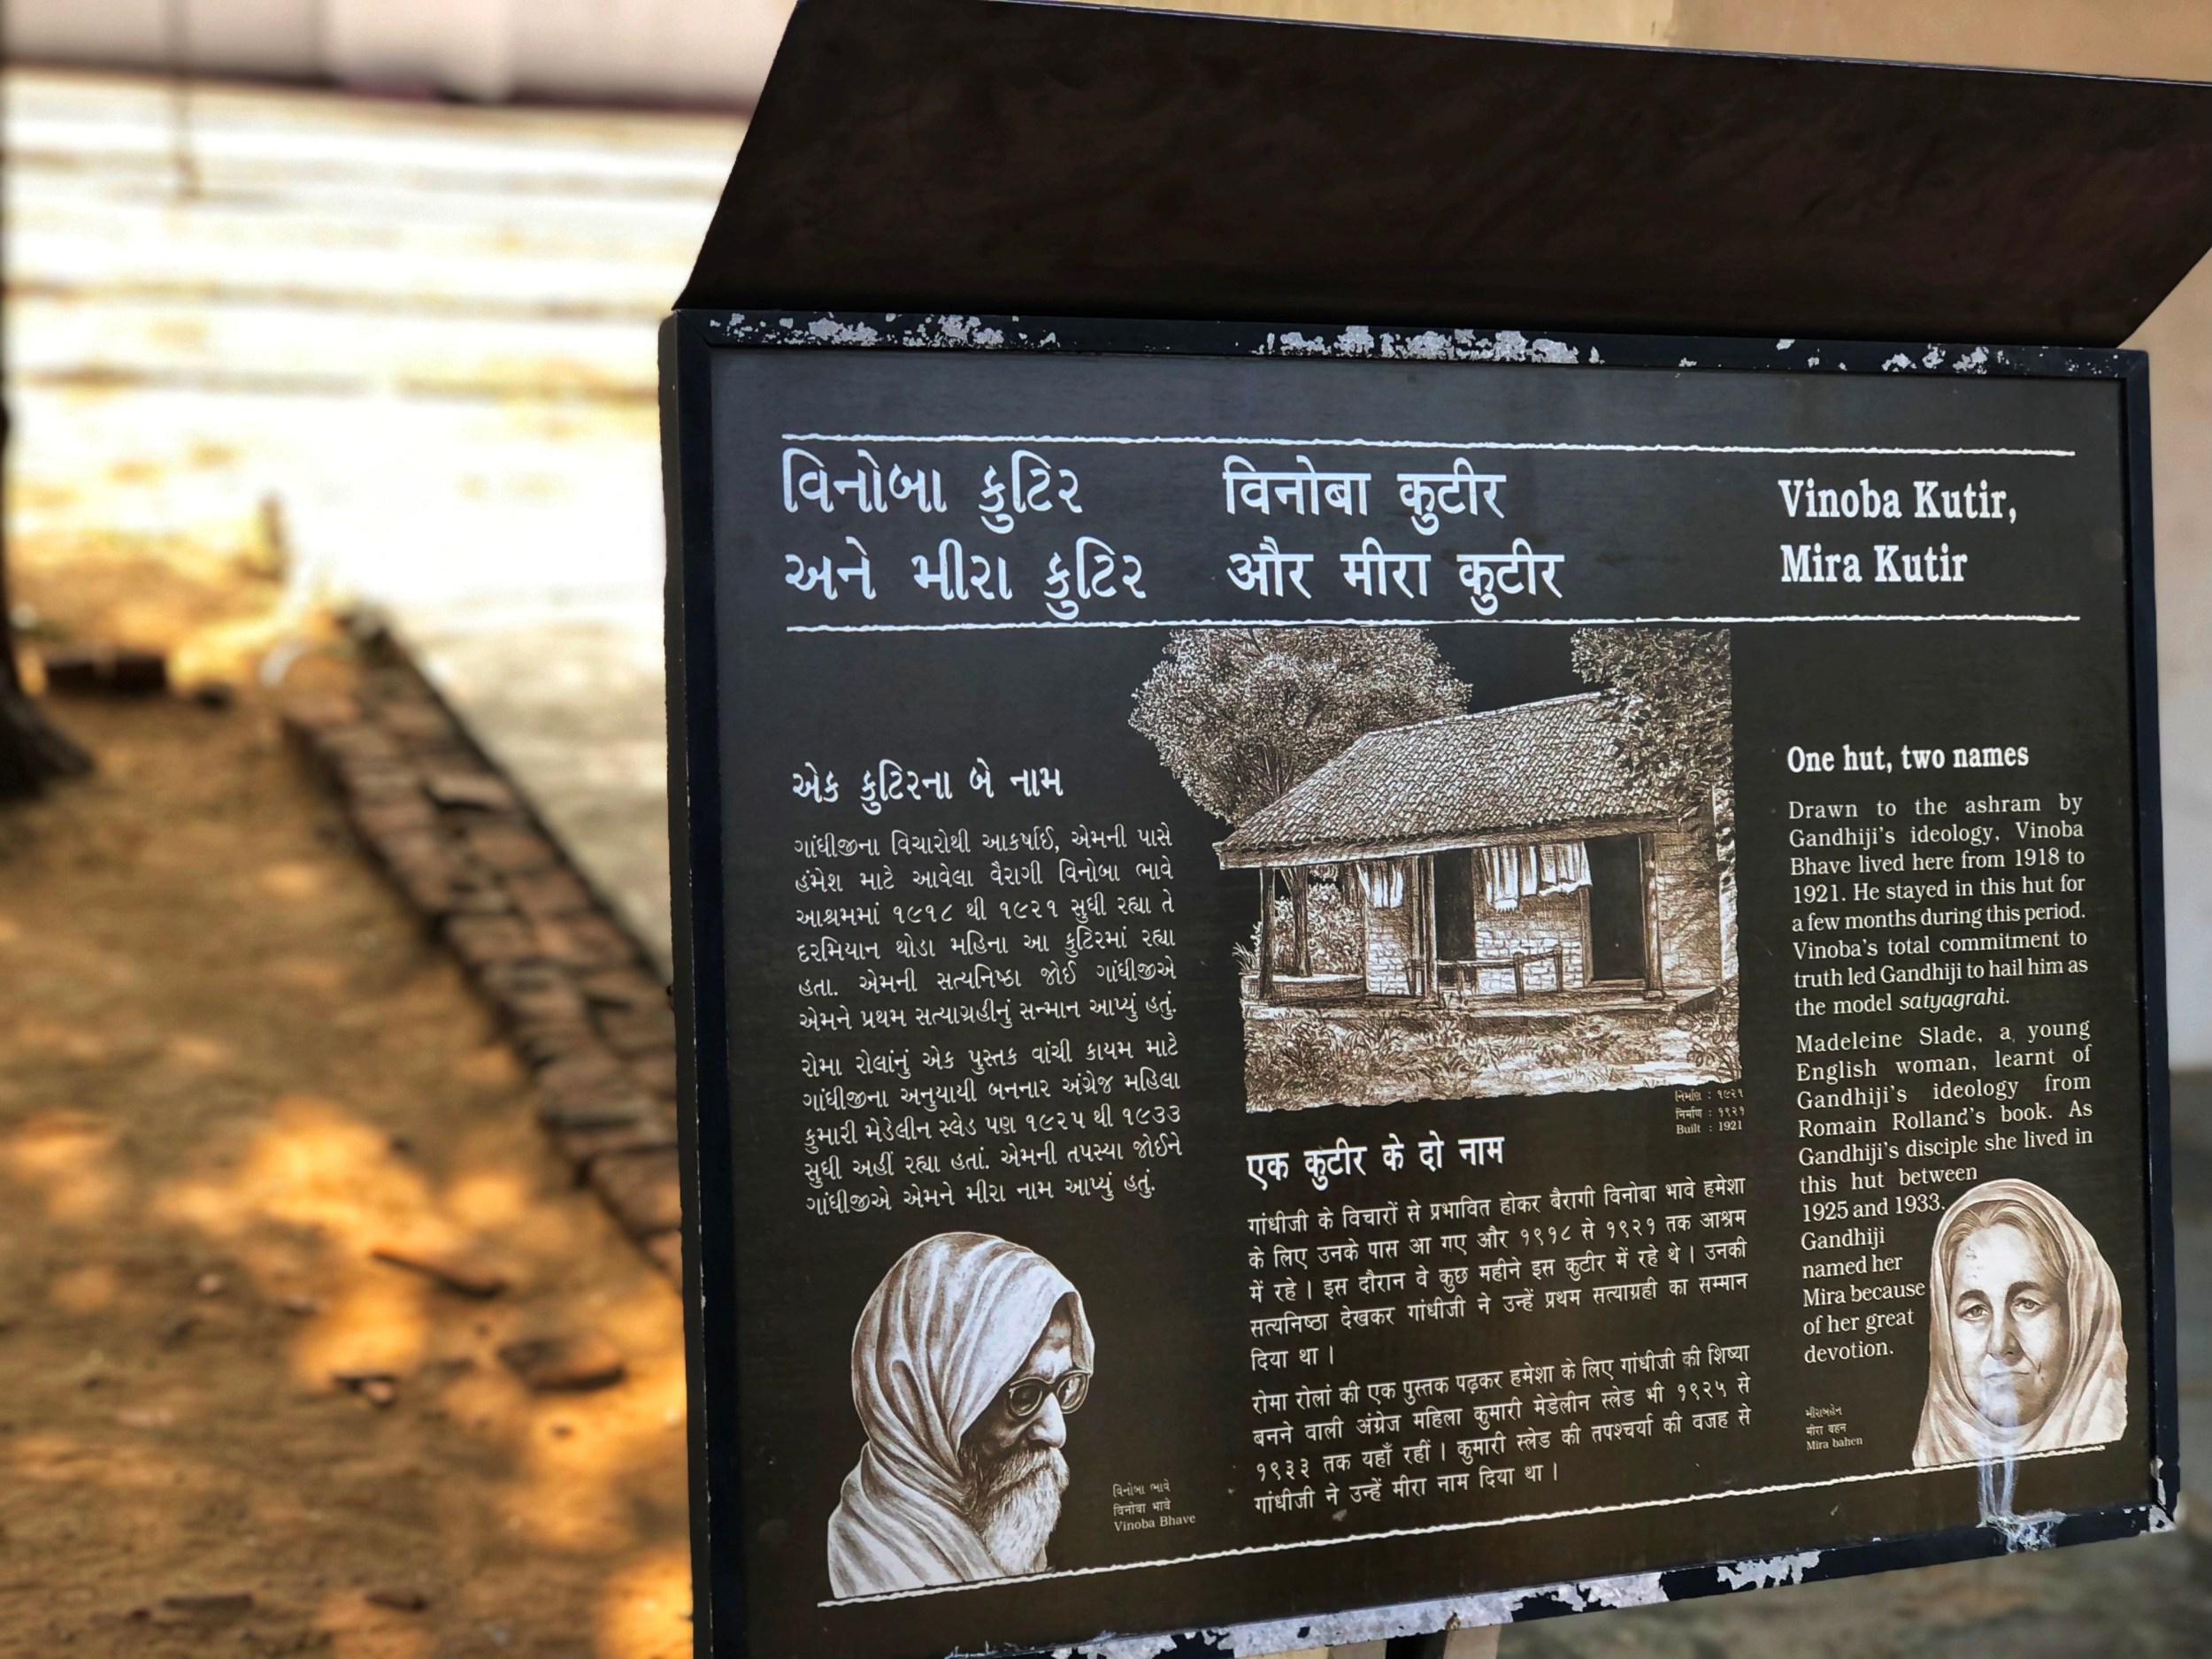 વિનોબા કુટિર
અને મીરા કુટિર
विनोबा कुटीर
और मीरा कुटीर
Vinoba Kutir,
Mira Kutir
એક કુટિરના બે નામ
ગાંધીજીના વિચારોથી આકર્ષાઈ, એમની પાસે
હંમેશ માટે આવેલા વૈરાગી વિનોબા ભાવે
આશ્રમમાં ૧૯૧૮ થી ૧૯૨૧ સુધી રહ્યા તે
દરમિયાન થોડા મહિના આ કુટિરમાં રહ્યા
હતા. એમની સત્યનિષ્ઠા જોઈ ગાંધીજીએ
એમને પ્રથમ સત્યાગ્રહીનું સન્માન આપ્યું હતું.
રોમા રોલાંનું એક પુસ્તક વાંચી કાયમ માટે
ગાંધીજીના અનુયાયી બનનાર અંગ્રેજ મહિલા
કુમારી મેડેલીન સ્લેડ પણ ૧૯૨૫ થી ૧૯૩૩
સુધી અહીં રહ્યા હતાં. એમની તપસ્યા જોઈને
ગાંધીજીએ એમને મીરા નામ આપ્યું હતું.
વિનોબા ભાવે
विनोबा भावे
Vinoba Bhave
નિર્માણ : ૧૯૨૧
निर्माण : १९२१
Built : 1921
एक कुटीर के दो नाम
गांधीजी के विचारों से प्रभावित होकर बैरागी विनोबा भावे हमेशा
के लिए उनके पास आ गए और १९१८ से १९२१ तक आश्रम
में रहे । इस दौरान वे कुछ महीने इस कुटीर में रहे थे । उनकी
सत्यनिष्ठा देखकर गांधीजी ने उन्हें प्रथम सत्याग्रही का सम्मान
दिया था ।
रोमा रोलां की एक पुस्तक पढ़कर हमेशा के लिए गांधीजी की शिष्या
बनने वाली अंग्रेज महिला कुमारी मेडेलीन स्लेड भी १९२५ से
१९३३ तक यहाँ रहीं । कुमारी स्लेड की तपश्चर्या की वजह से
गांधीजी ने उन्हें मीरा नाम दिया था ।
One hut, two names
Drawn to the ashram by
Gandhiji's ideology, Vinoba
Bhave lived here from 1918 to
1921. He stayed in this hut for
a few months during this period.
Vinoba's total commitment to
truth led Gandhiji to hail him as
the model satyagrahi.
Madeleine Slade, a young
English woman, learnt of
Gandhiji's ideology from
Romain Rolland's book. As
Gandhiji's disciple she lived in
this hut between
1925 and 1933.
Gandhiji
named her
Mira because
of her great
devotion.
મીરાબહેન
मीरा बहन
Mira bahen